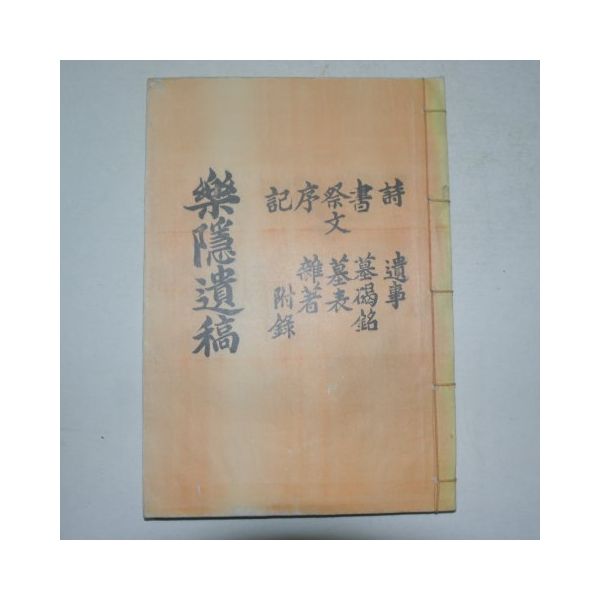 詩 遺事
書 墓碣銘
祭文 墓表
序 雜著
記 附錄
樂隱遺稿